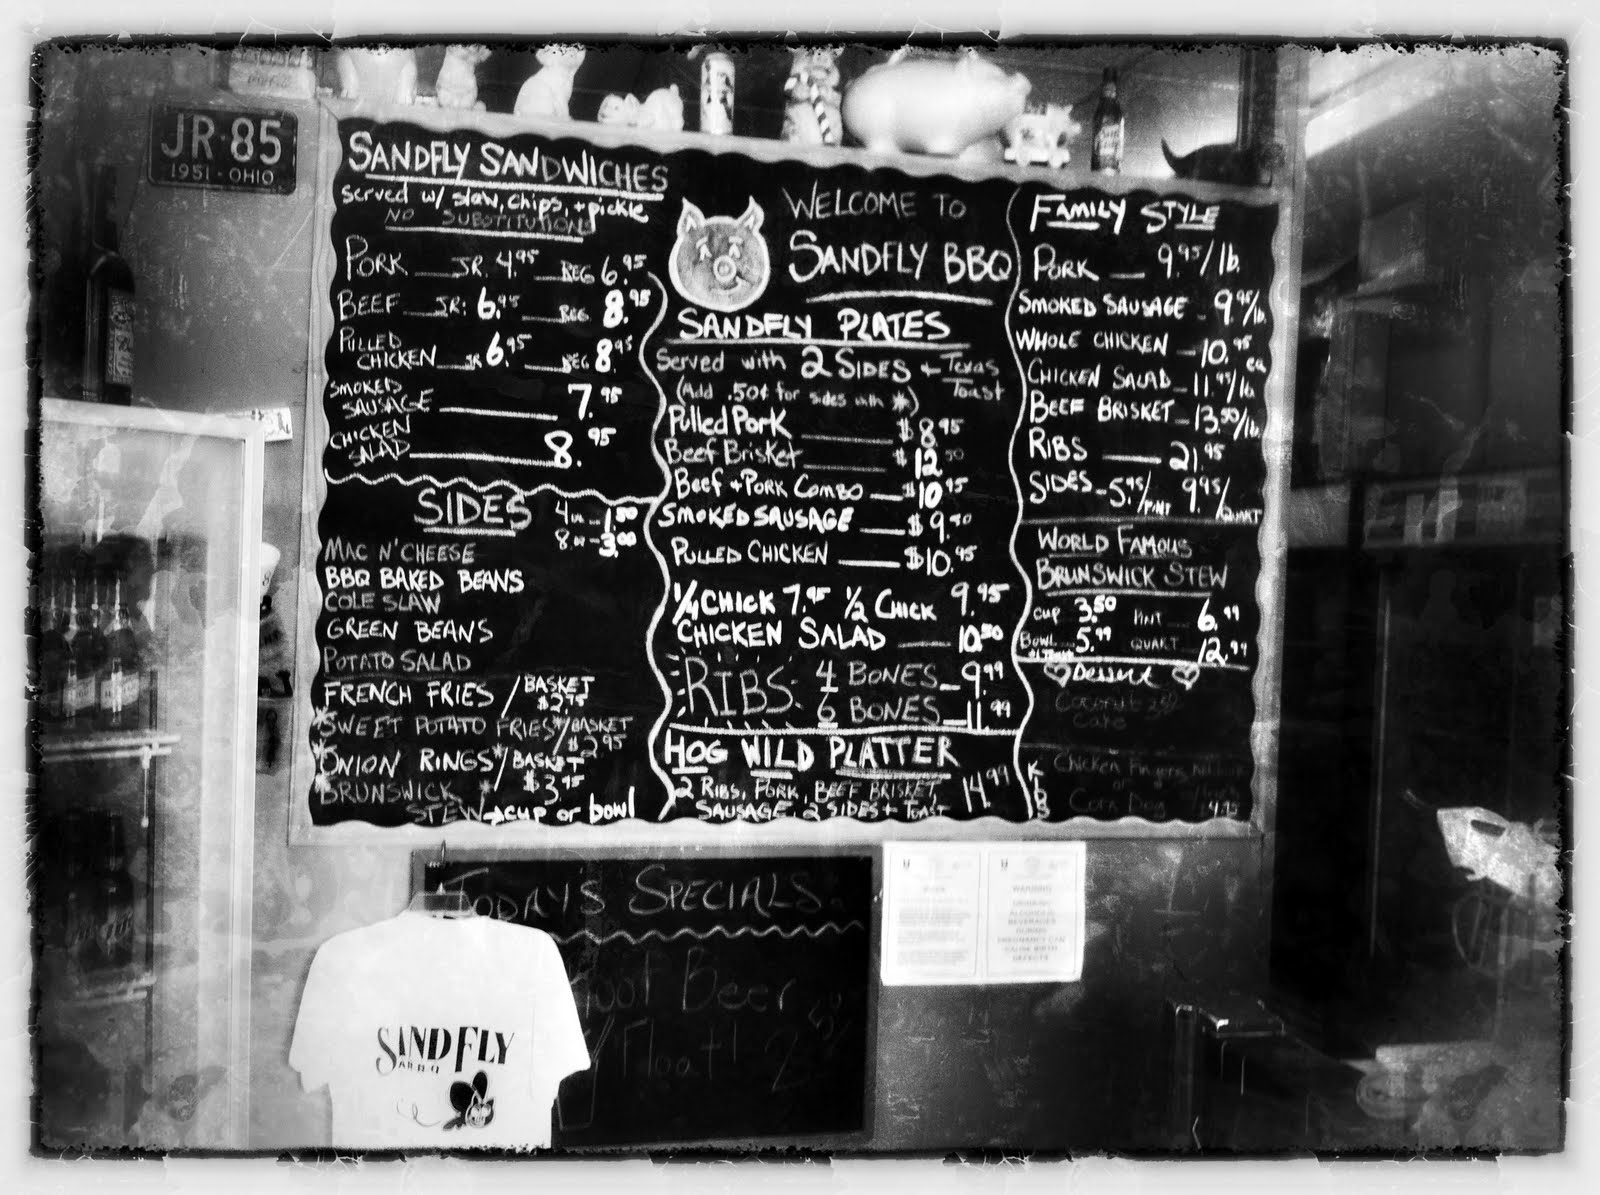 JR·85
1951-OHIO
SANDFLY SANDWICHES
served w/ slaw, chips, + pickle
NO SUBSTITUTIONS
PORK JR. 4.95 REG 6.95
BEEF JR: 6.95 REG. 8.95
PULLED
CHICKEN JR 6.95 REG 8.95
SMOKED
SAUSAGE 7.95
CHICKEN
SALAD 8.95
SIDES
4oz - 1.50
8oz - 3.00
MAC N' CHEESE
BBQ BAKED BEANS
COLE SLAW
GREEN BEANS
POTATO SALAD
FRENCH FRIES / BASKET
$2.75
*SWEET POTATO FRIES* / BASKET
$2.95
*ONION RINGS* / BASKET
$3.95
*BRUNSWICK *
STEW → cup or bowl
WELCOME TO
SANDFLY BBQ
SANDFLY PLATES
Served with 2 SIDES + Texas
Toast
(Add .50¢ for sides with *)
Pulled Pork $8.95
Beef Brisket $12.50
Beef + PORK COMBO $10.95
SMOKED SAUSAGE $9.50
PULLED CHICKEN $10.95
1/4 CHICK 7.95 1/2 CHICK 9.95
CHICKEN SALAD 10.50
RIBS: 4 BONES 9.99
6 BONES 11.99
HOG WILD PLATTER
2 RIBS, PORK, BEEF BRISKET, 14.99
SAUSAGE, 2 SIDES + TOAST
FAMILY STYLE
PORK 9.95/lb.
SMOKED SAUSAGE 9.95/lb.
WHOLE CHICKEN 10.95 ea
CHICKEN SALAD 11.95/lb.
BEEF BRISKET 13.50/lb.
RIBS 21.95
SIDES 5.95/PINT 9.95/QUART
WORLD FAMOUS
BRUNSWICK STEW
CUP 3.50 PINT 6.99
BOWL 5.99 QUART 12.99
Dessert
Coconut
Cake
KIDS
Chicken Fingers
or
Corn Dog 4.95
TODAY'S SPECIALS
Root Beer
Float
SANDFLY
BAR-B-Q
WARNING
DRINKING
ALCOHOLIC
BEVERAGES
DURING
PREGNANCY CAN
CAUSE BIRTH
DEFECTS